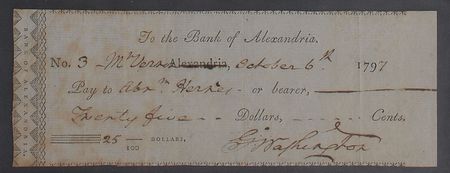 To the Bank of Alexandria.
No. 3 Mt Vern Alexandria, October 6th 1797
Pay to Abrm or bearer,
Twenty five Dollars, Cents.
25/100 DOLLARS,
Go Washington
BANK OF ALEXANDRIA.